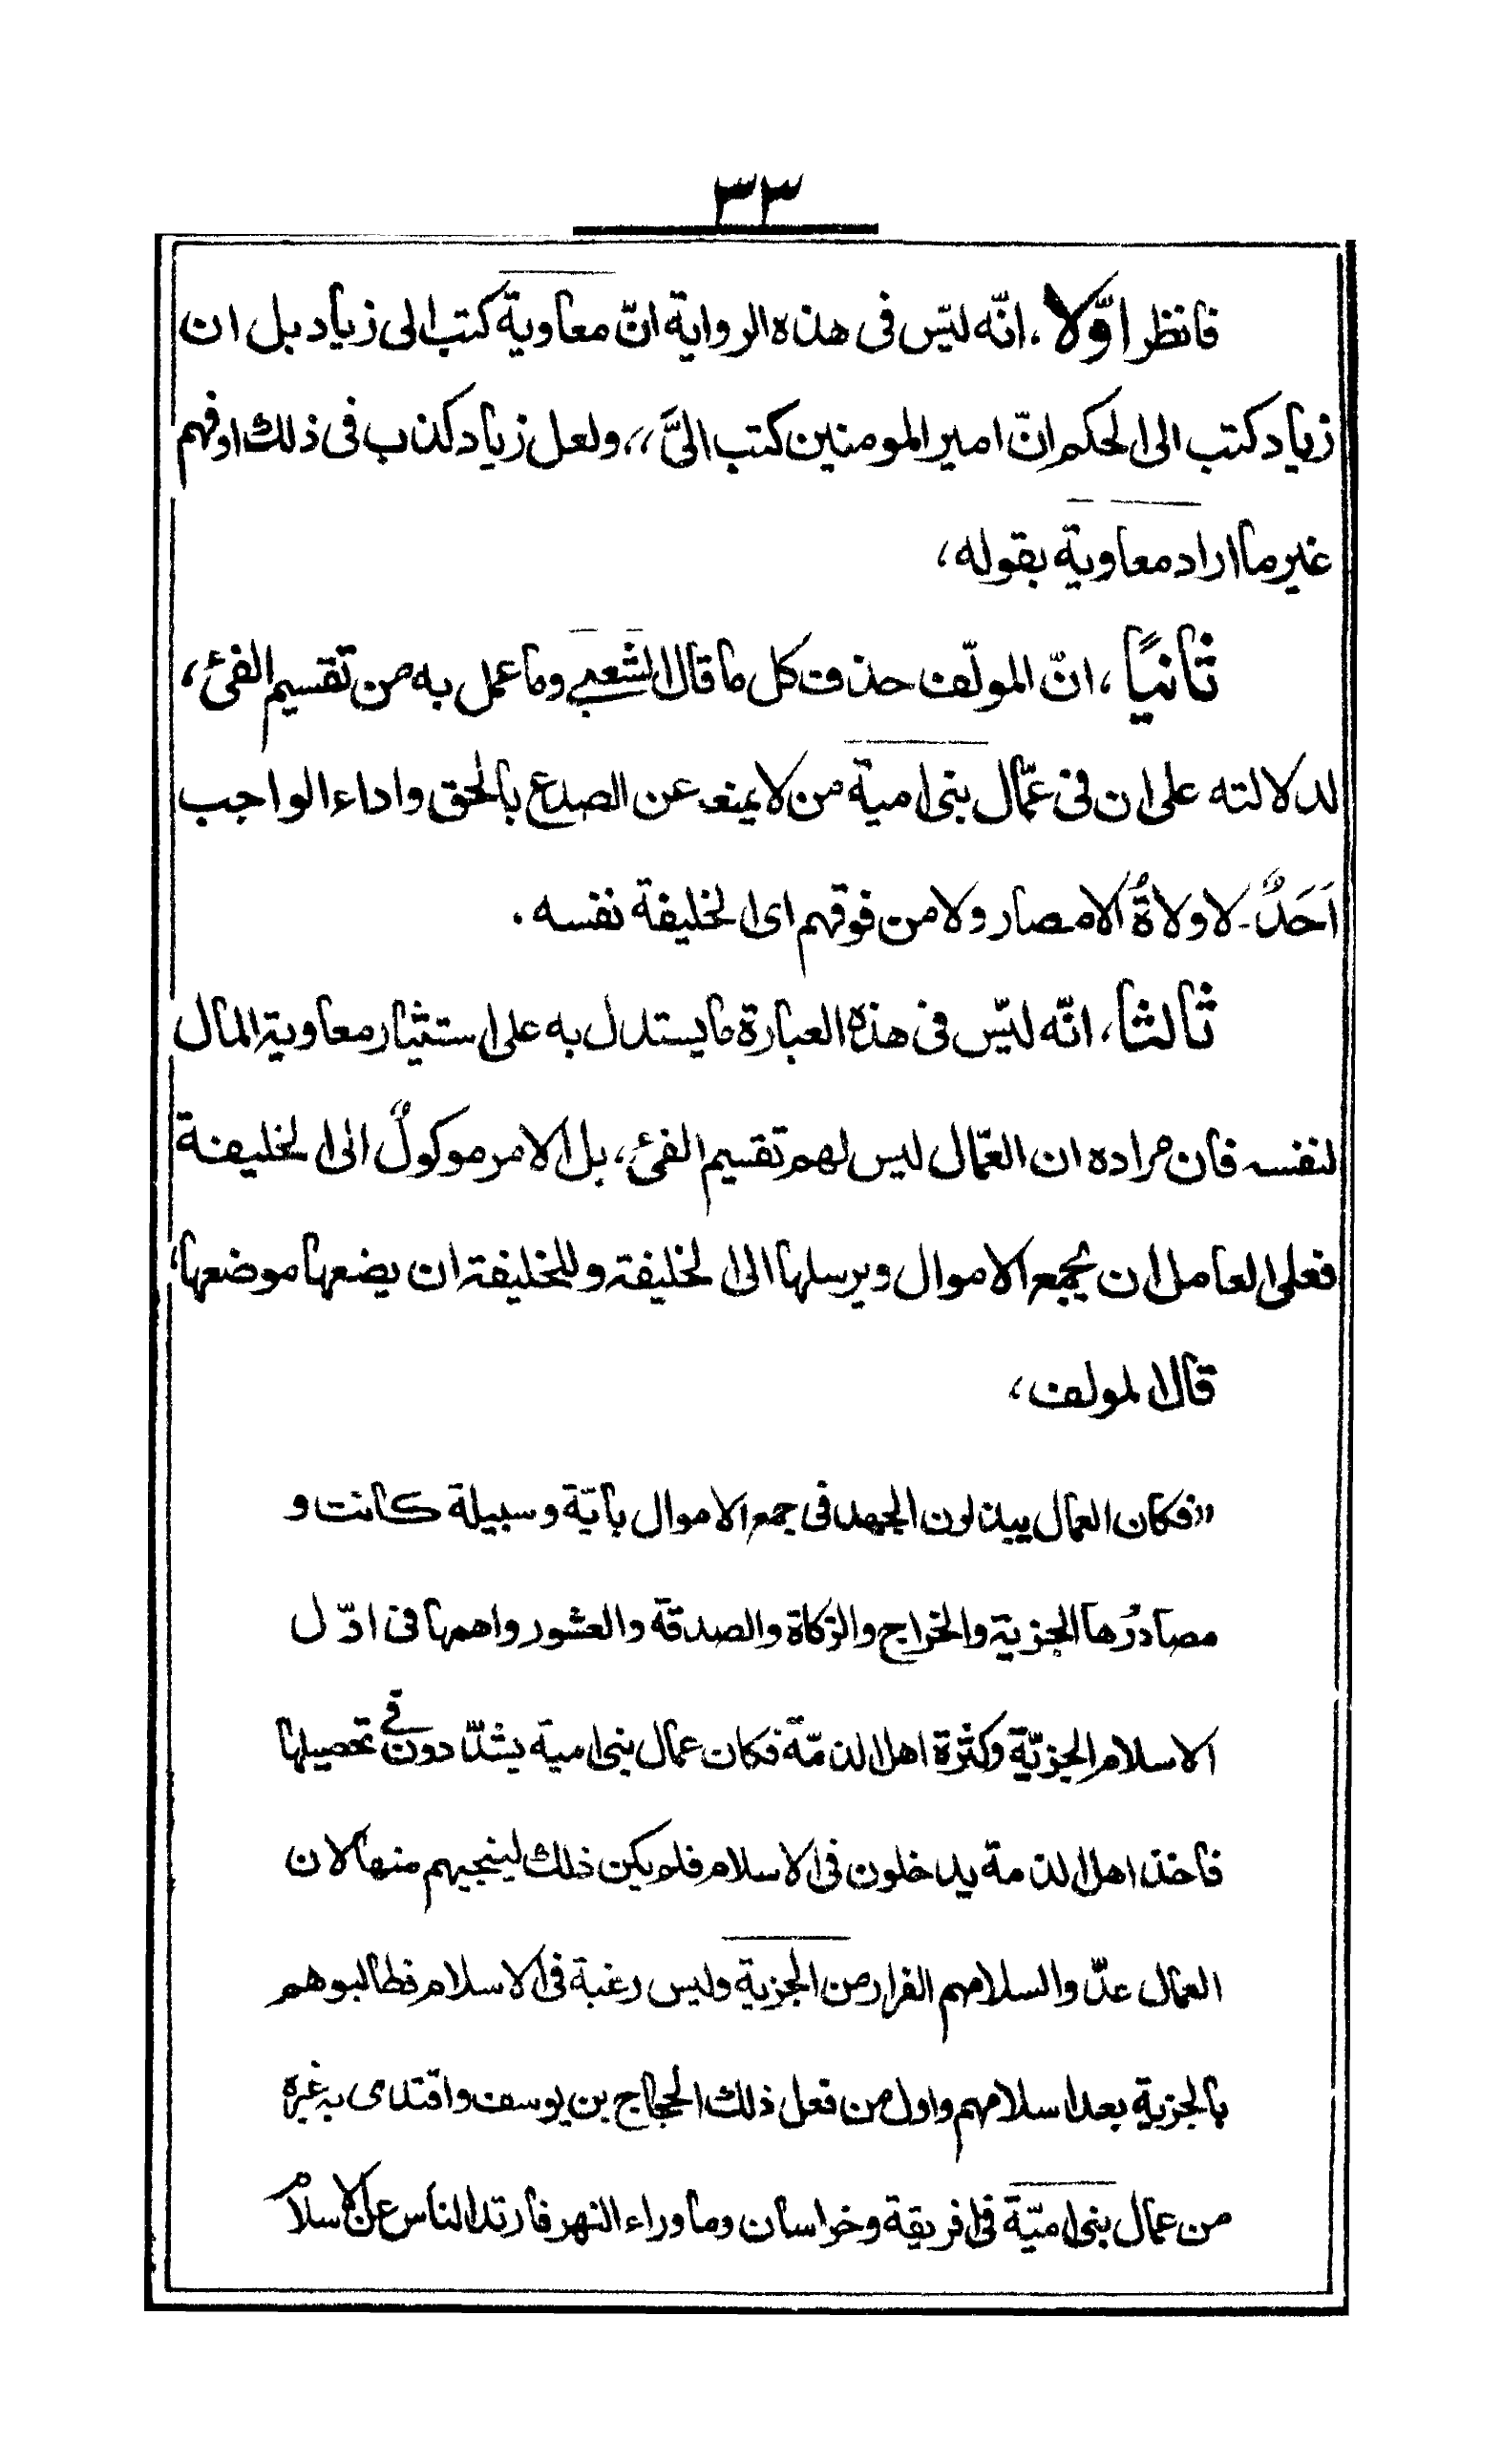 ٣٣
فانظر اوّلا، انّه ليّس فى هذه الرواية انّ معاوية كتب الى زياد بل ان
زياد كتب الى الحكم انّ امير المومنين كتب الىَّ،، ولعل زياد كذب فى ذلك او فهم
غير ما اراد معاوية بقوله،
ثانيًا، انّ المولّف حذف كل ما قال الشعبى وما عمل به من تقسيم الفئ،
لدلالته على ان فى عمّال بنى امية من لا يمنعه عن الصدع بالحق واداء الواجب
اَحَدٌ۔ لا ولاةُ الامصار ولا من فوقهم اى الخليفة نفسه.
ثالثا، انّه ليّس فى هذه العبارة ما يستدل به على استئيثار معاوية المال
لنفسه فان مراده ان العمّال ليس لهم تقسيم الفئ، بل الامر موكولٌ الى الخليفة
فعلى العامل ان يجمع الاموال ويرسلها الى الخليفة وللخليفة ان يضعها موضعها،
قال المولف،
،،فكان العمال يبذلون الجهد فى جمع الاموال بايّة وسيلة كانت و
مصادرُها الجزية والخراج والزكاة والصدقة والعشور واهمها فى اوّل
الاسلام الجزيّة وكثرة اهل الذمّة فكان عمال بنى امية يشدّدون فى تحصيلها
فاخذ اهل الذمة يدخلون فى الاسلام فلم يكن ذلك لينجيهم منها لان
العمال عدّوا لسلامهم الفرار من الجزية وليس رغبة فى الاسلام فطالبوهم
بالجزية بعد اسلامهم واول من فعل ذلك الحجاج بن يوسف واقتدى به غيره
من عمال بنى اميّة فى افريقة وخراسان وما وراء النهر فارتد الناس عن الاسلام